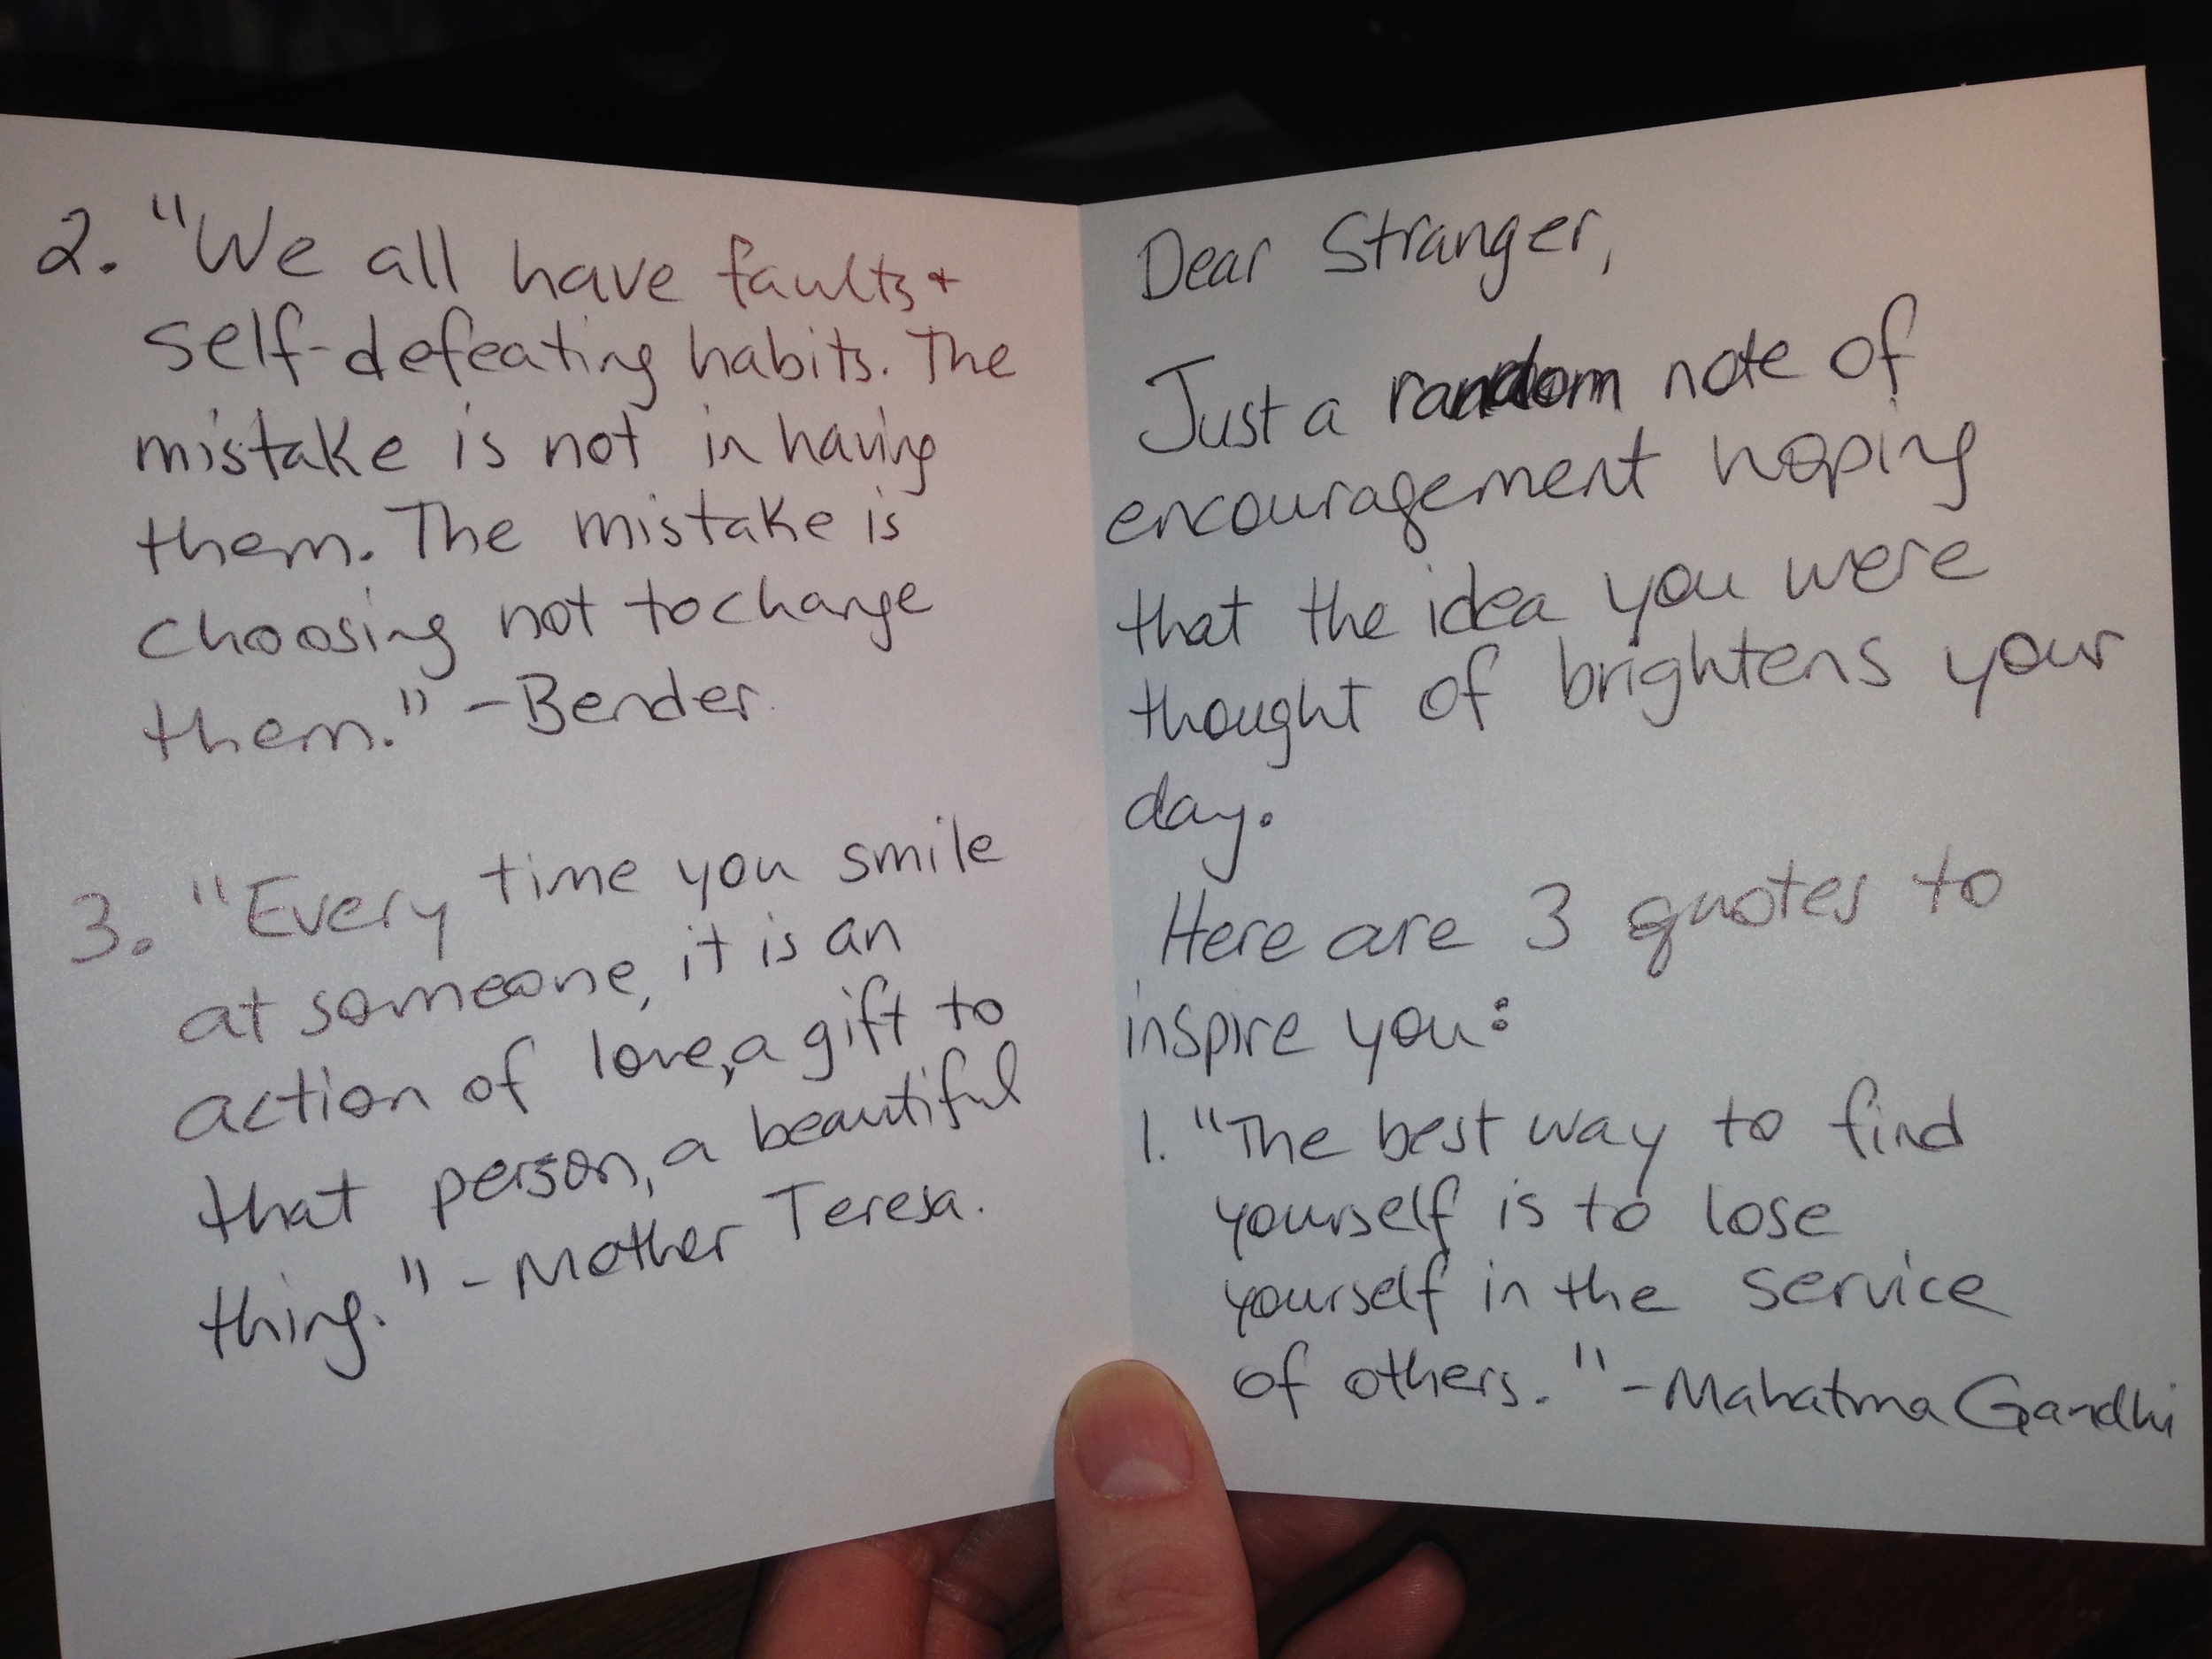 Dear Stranger,
Just a random note of
encouragement hoping
that the idea you were
thought of brightens your
day.
Here are 3 quotes to
inspire you:
1. "The best way to find
yourself is to lose
yourself in the service
of others." -Mahatma Gandhi
2. "We all have faults +
self-defeating habits. The
mistake is not in having
them. The mistake is
choosing not to change
them." -Bender
3. "Every time you smile
at someone, it is an
action of love, a gift to
that person, a beautiful
thing." - Mother Teresa.